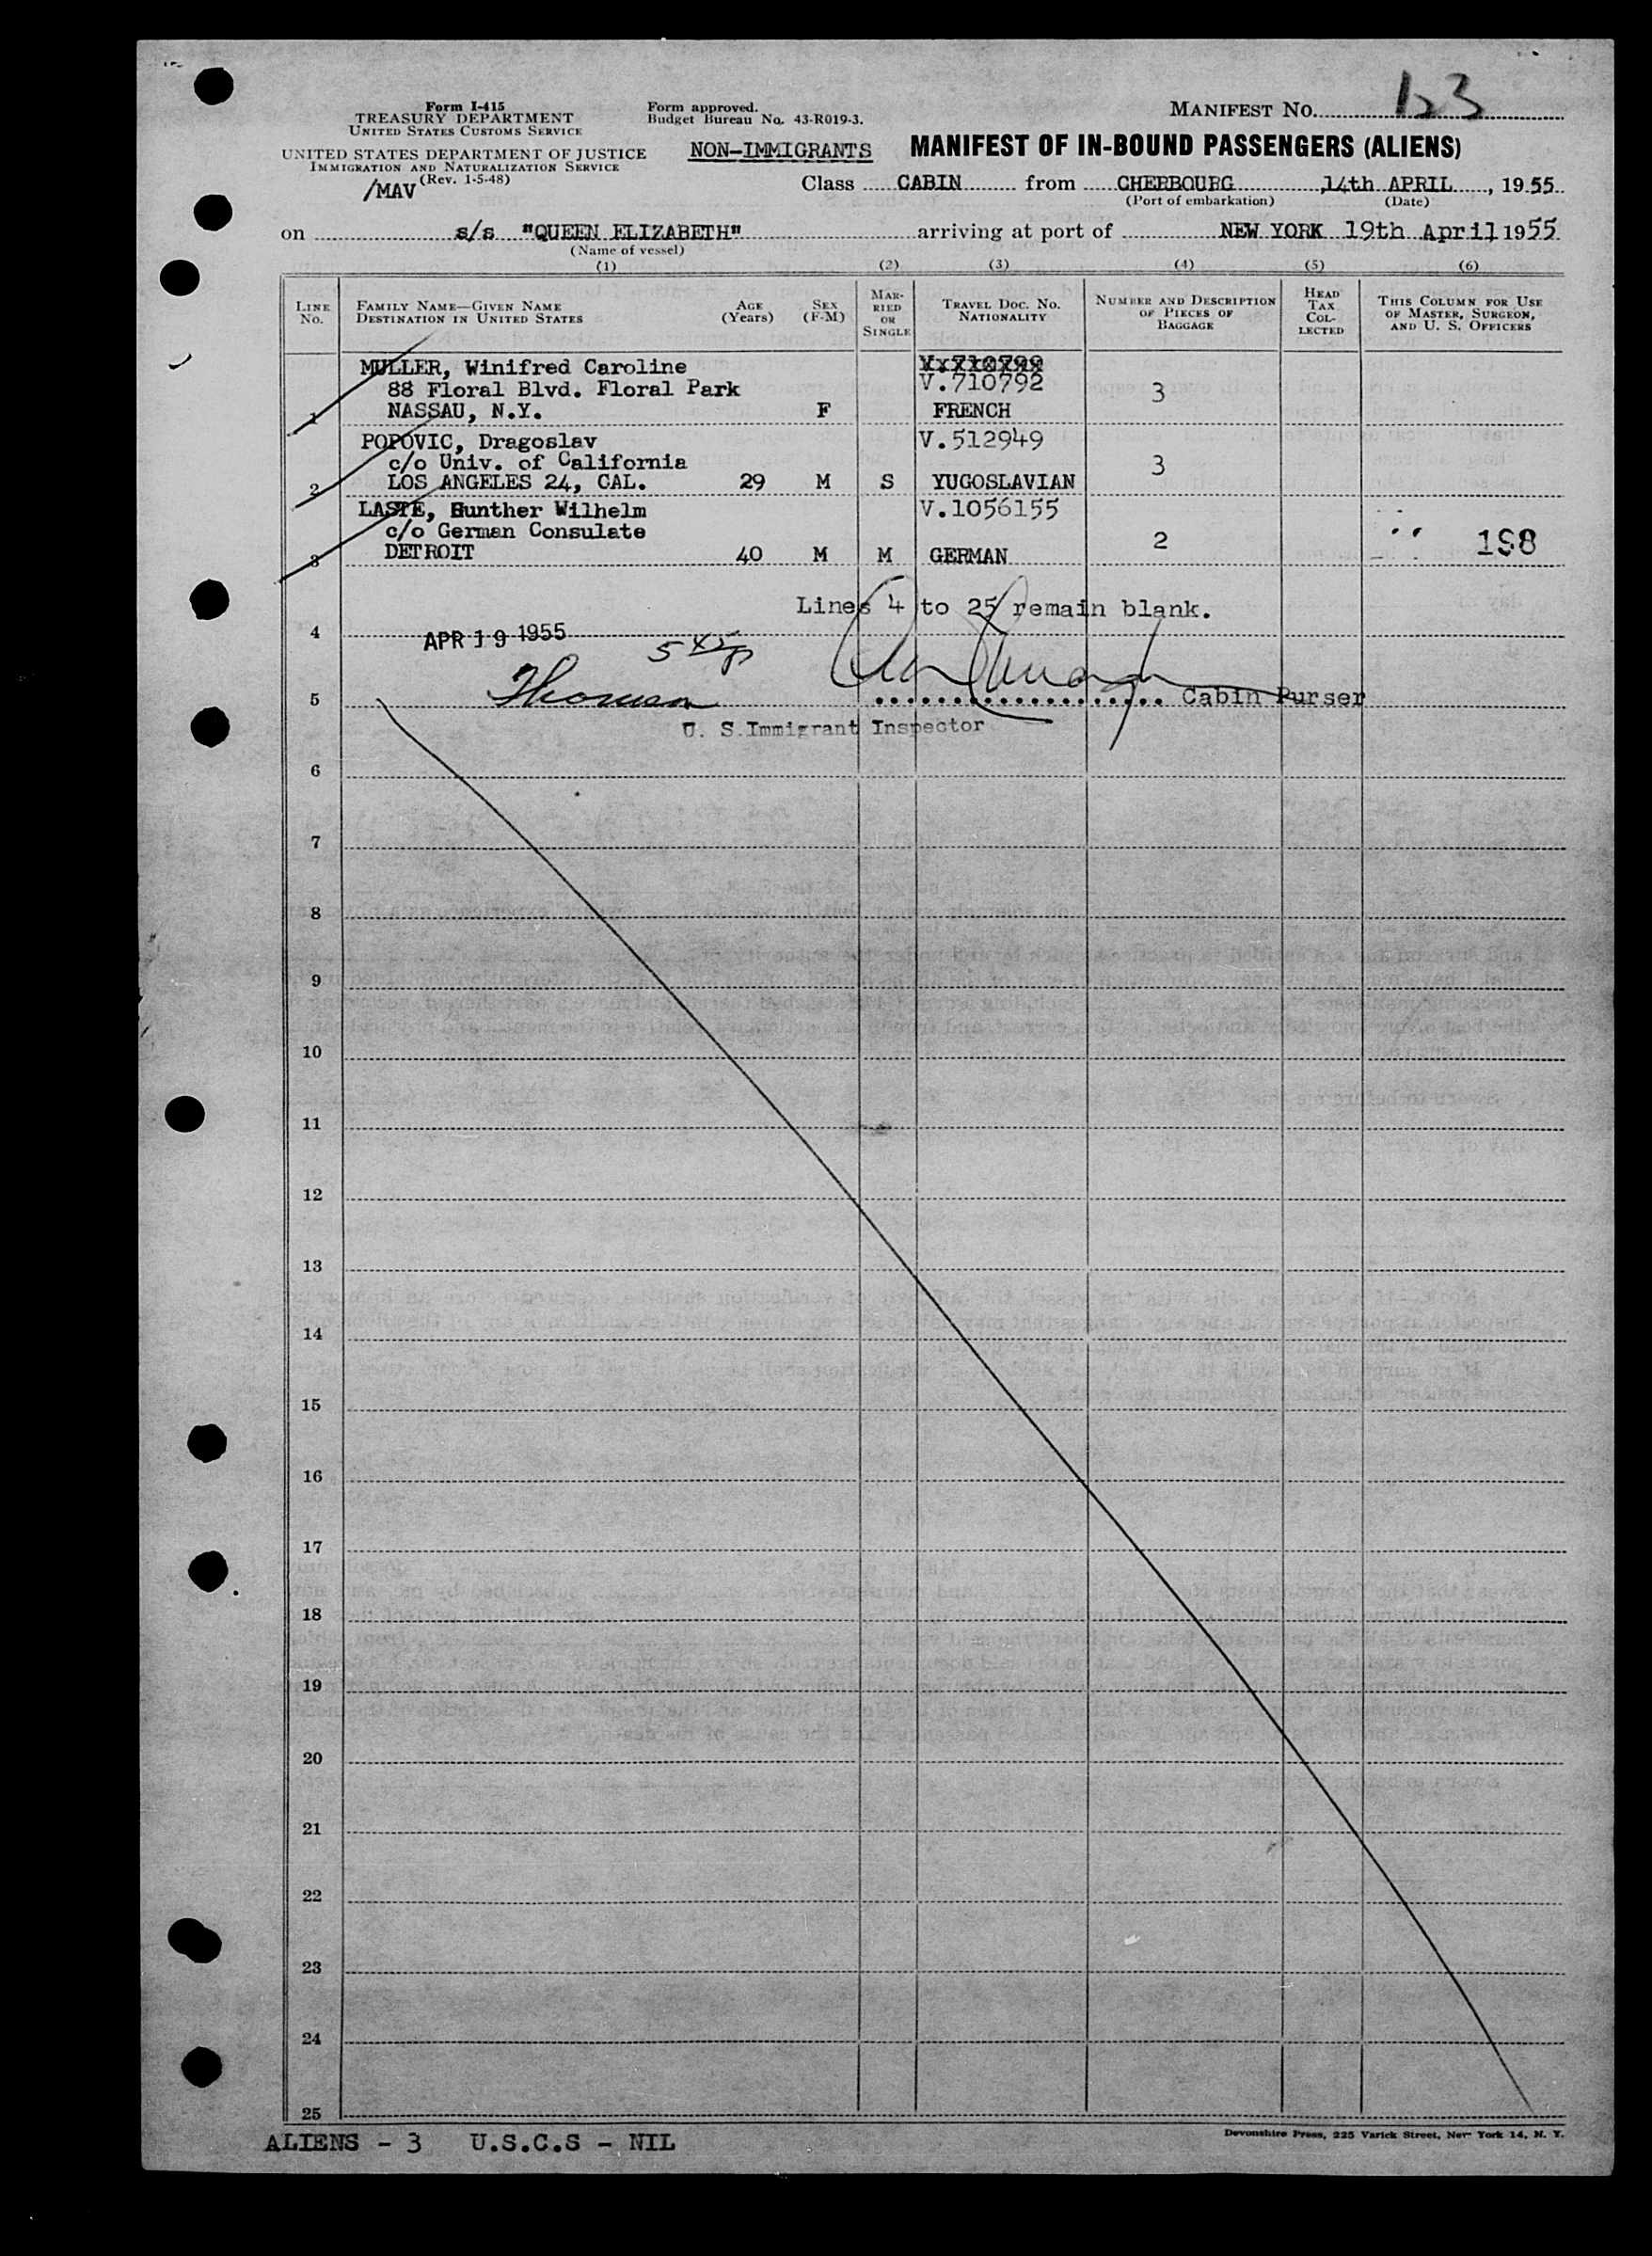 Form I-415
TREASURY DEPARTMENT
UNITED STATES CUSTOMS SERVICE
UNITED STATES DEPARTMENT OF JUSTICE
IMMIGRATION AND NATURALIZATION SERVICE
(Rev. 1-5-48)
/MAV
Form approved.
Budget Bureau No. 43-R019-3.
MANIFEST No. 123
NON-IMMIGRANTS MANIFEST OF IN-BOUND PASSENGERS (ALIENS)
Class CABIN from CHERBOURG 14th APRIL, 1955
(Port of embarkation) (Date)
on s/s "QUEEN ELIZABETH" arriving at port of NEW YORK 19th April 1955
(Name of vessel)
(1) (2) (3) (4) (5) (6)
LINE No. FAMILY NAME—GIVEN NAME DESTINATION IN UNITED STATES AGE (Years) SEX (F-M) MARRIED OR SINGLE TRAVEL DOC. NO. NATIONALITY NUMBER AND DESCRIPTION OF PIECES OF BAGGAGE HEAD TAX COLLECTED THIS COLUMN FOR USE OF MASTER, SURGEON, AND U. S. OFFICERS
MULLER, Winifred Caroline
88 Floral Blvd. Floral Park V.710792 3
1 NASSAU, N.Y. F FRENCH
POPOVIC, Dragoslav V.512949
c/o Univ. of California 3
2 LOS ANGELES 24, CAL. 29 M S YUGOSLAVIAN
LASTE, Gunther Wilhelm V.1056155
c/o German Consulate 2 198
3 DETROIT 40 M M GERMAN
Lines 4 to 25 remain blank.
4 APR 19 1955 5 45 p
5 Thomson Cabin Purser
U. S. Immigrant Inspector
6
7
8
9
10
11
12
13
14
15
16
17
18
19
20
21
22
23
24
25
ALIENS - 3 U.S.C.S - NIL
Devonshire Press, 225 Varick Street, New York 14, N. Y.